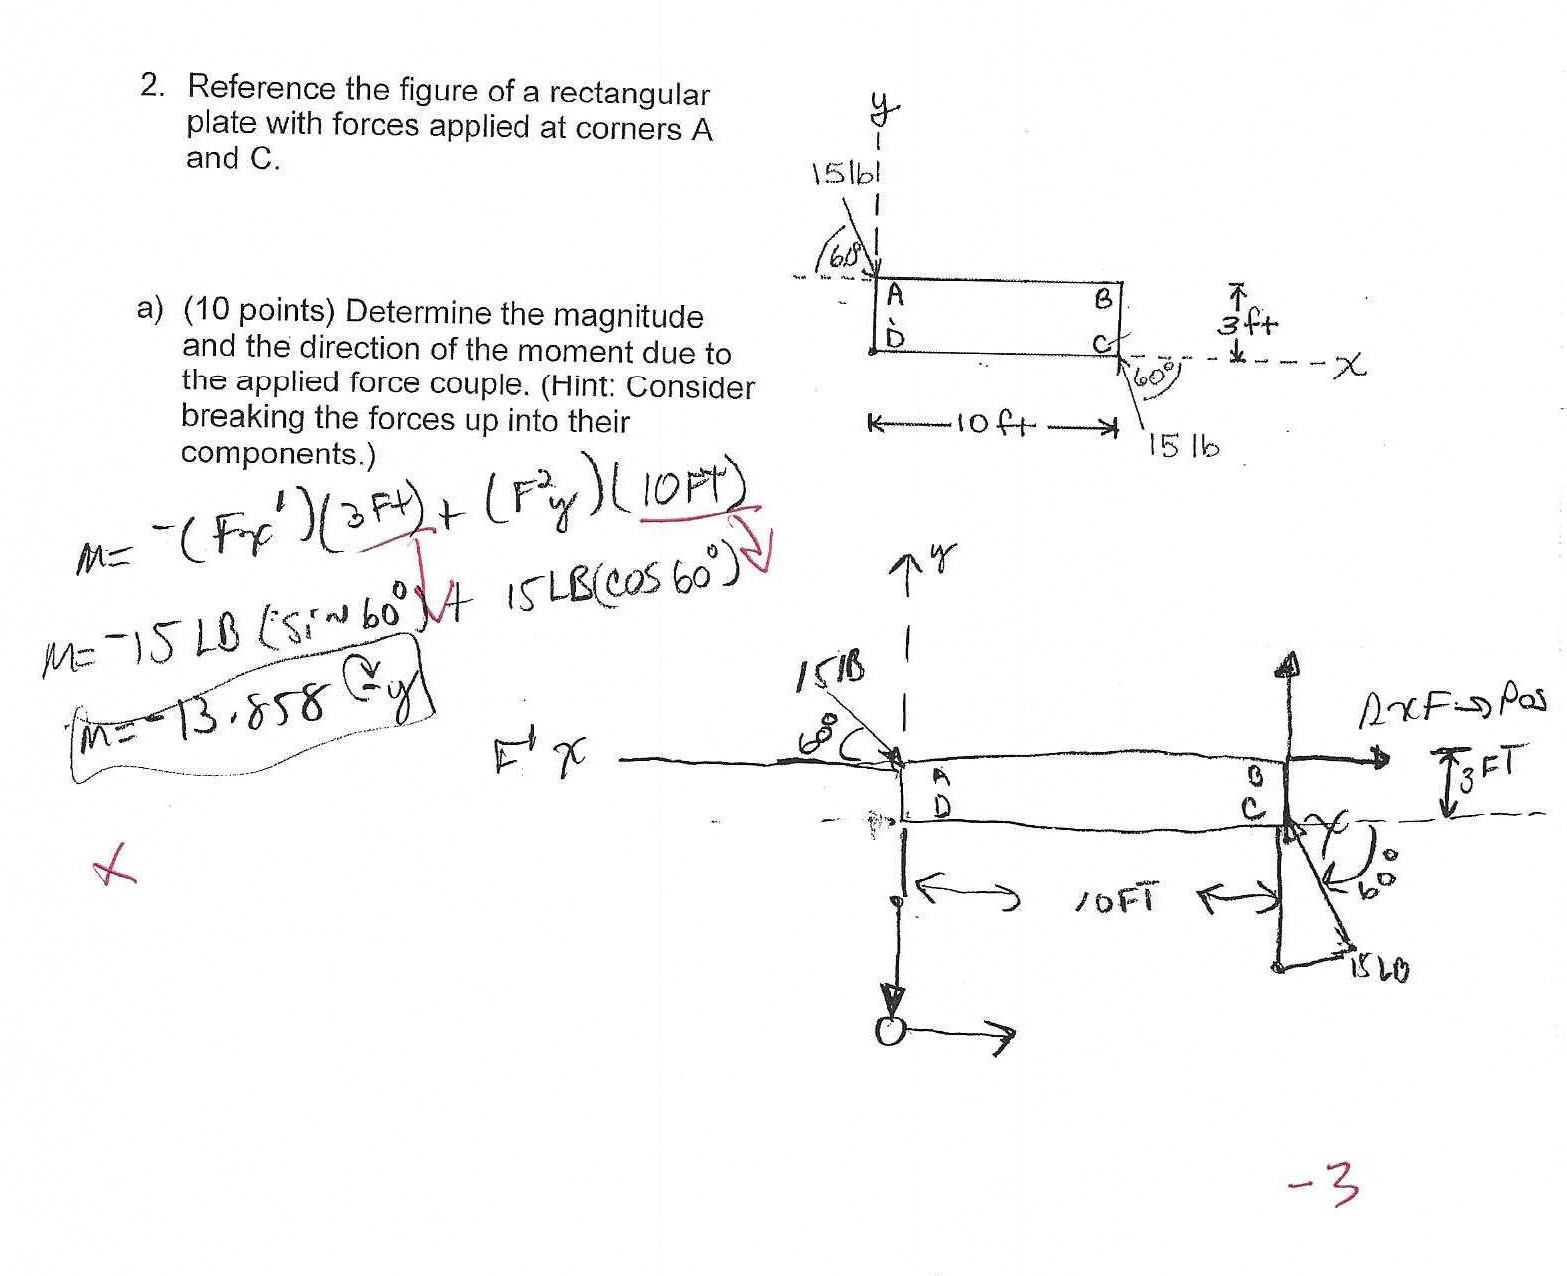 2. Reference the figure of a rectangular
plate with forces applied at corners A
and C.
a) (10 points) Determine the magnitude
and the direction of the moment due to
the applied force couple. (Hint: Consider
breaking the forces up into their
components.)
y
15lb
60°
A
B
D
C
3ft
x
60°
10ft
15 lb
M= -(Fx¹)(3Ft) + (F²y)(10FT)
M= -15 LB (sin 60°) + 15LB(cos 60°)
M= -13.858
y
15lB
60°
F¹x
A
B
D
C
RxF→Pos
3FT
x
60°
10FT
15LB
-3